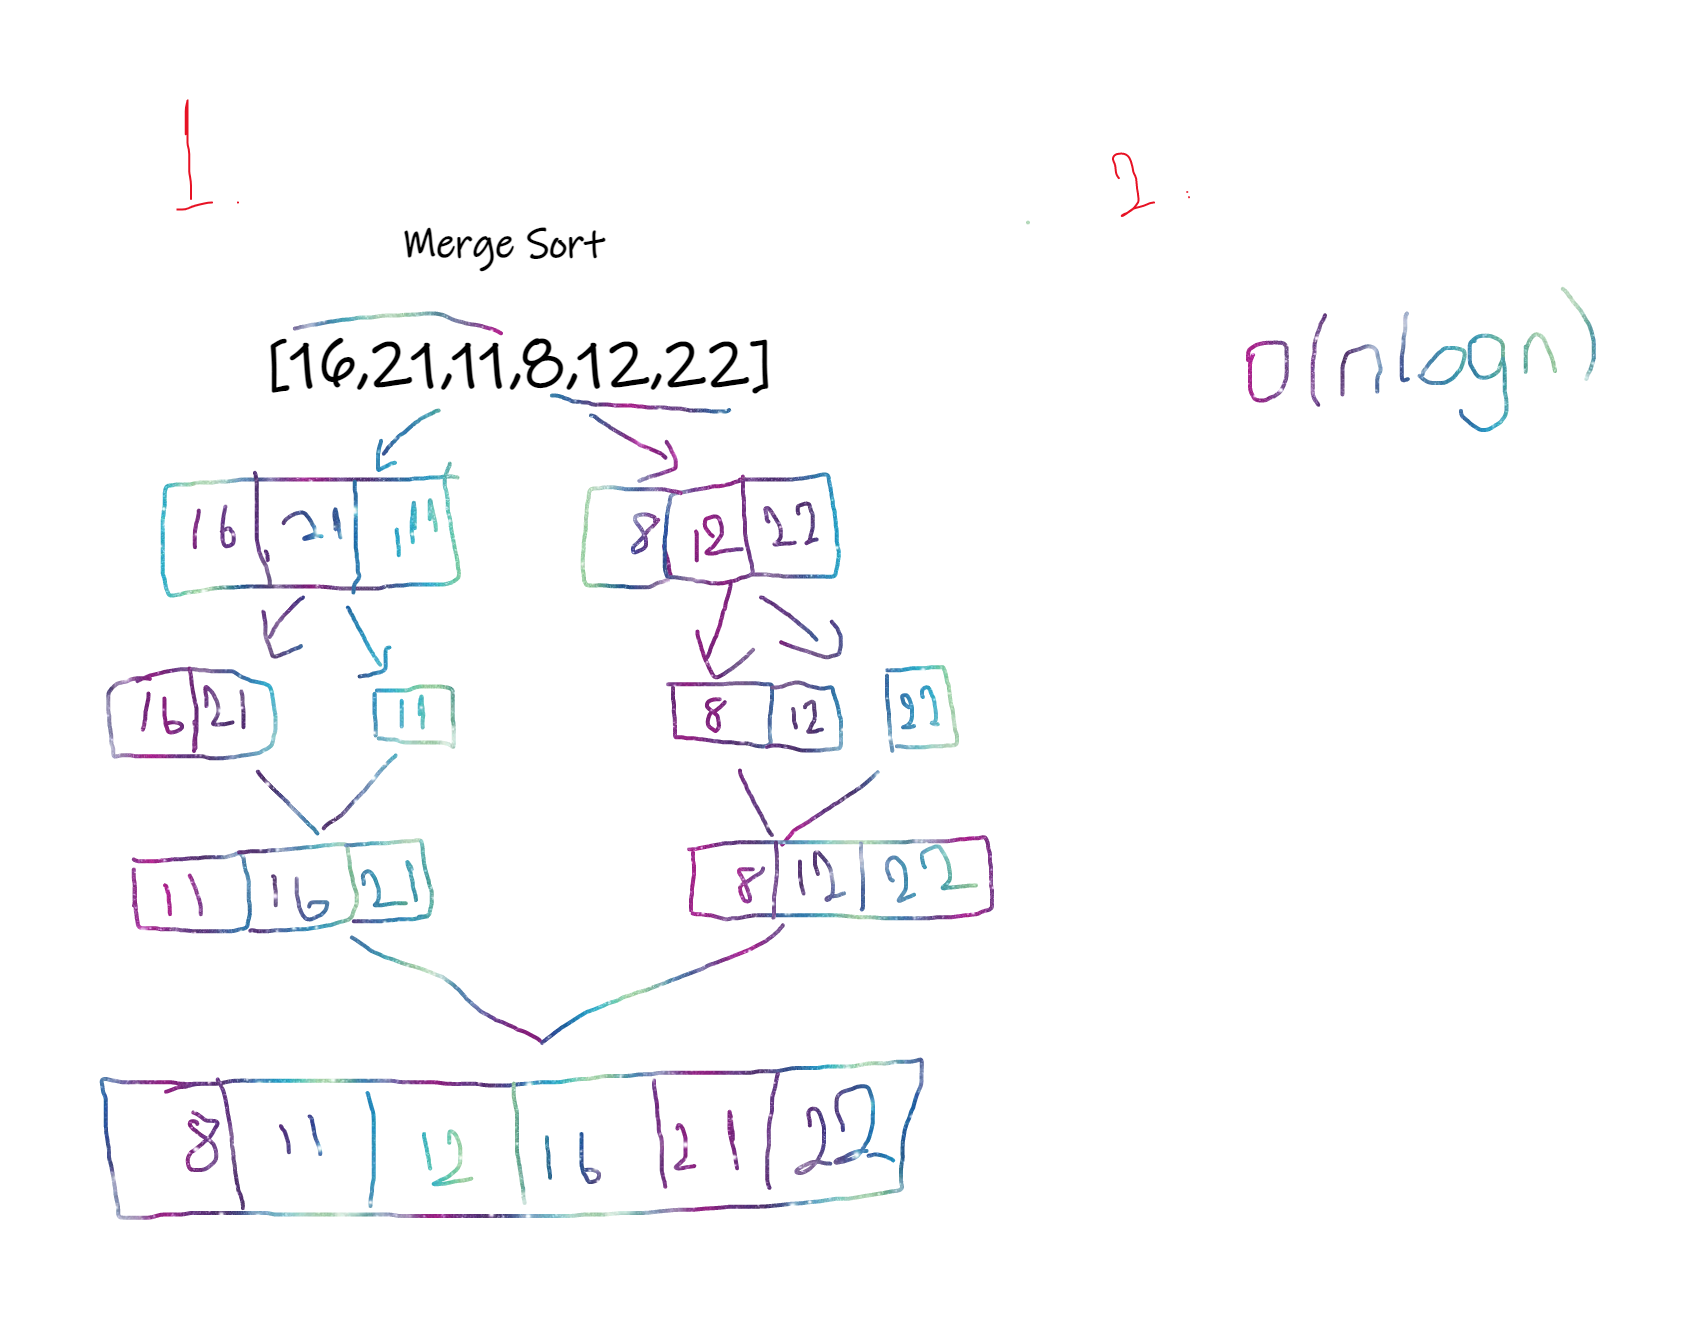 1.
2.
Merge Sort
[16,21,11,8,12,22]
O(nlogn)
16 21 11 8 12 22
16 21 11 8 12 22
11 16 21 8 12 22
8 11 12 16 21 22